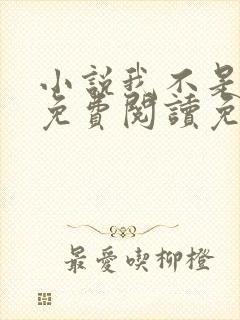 小說我不是
免費閱讀免
最愛喫柳橙